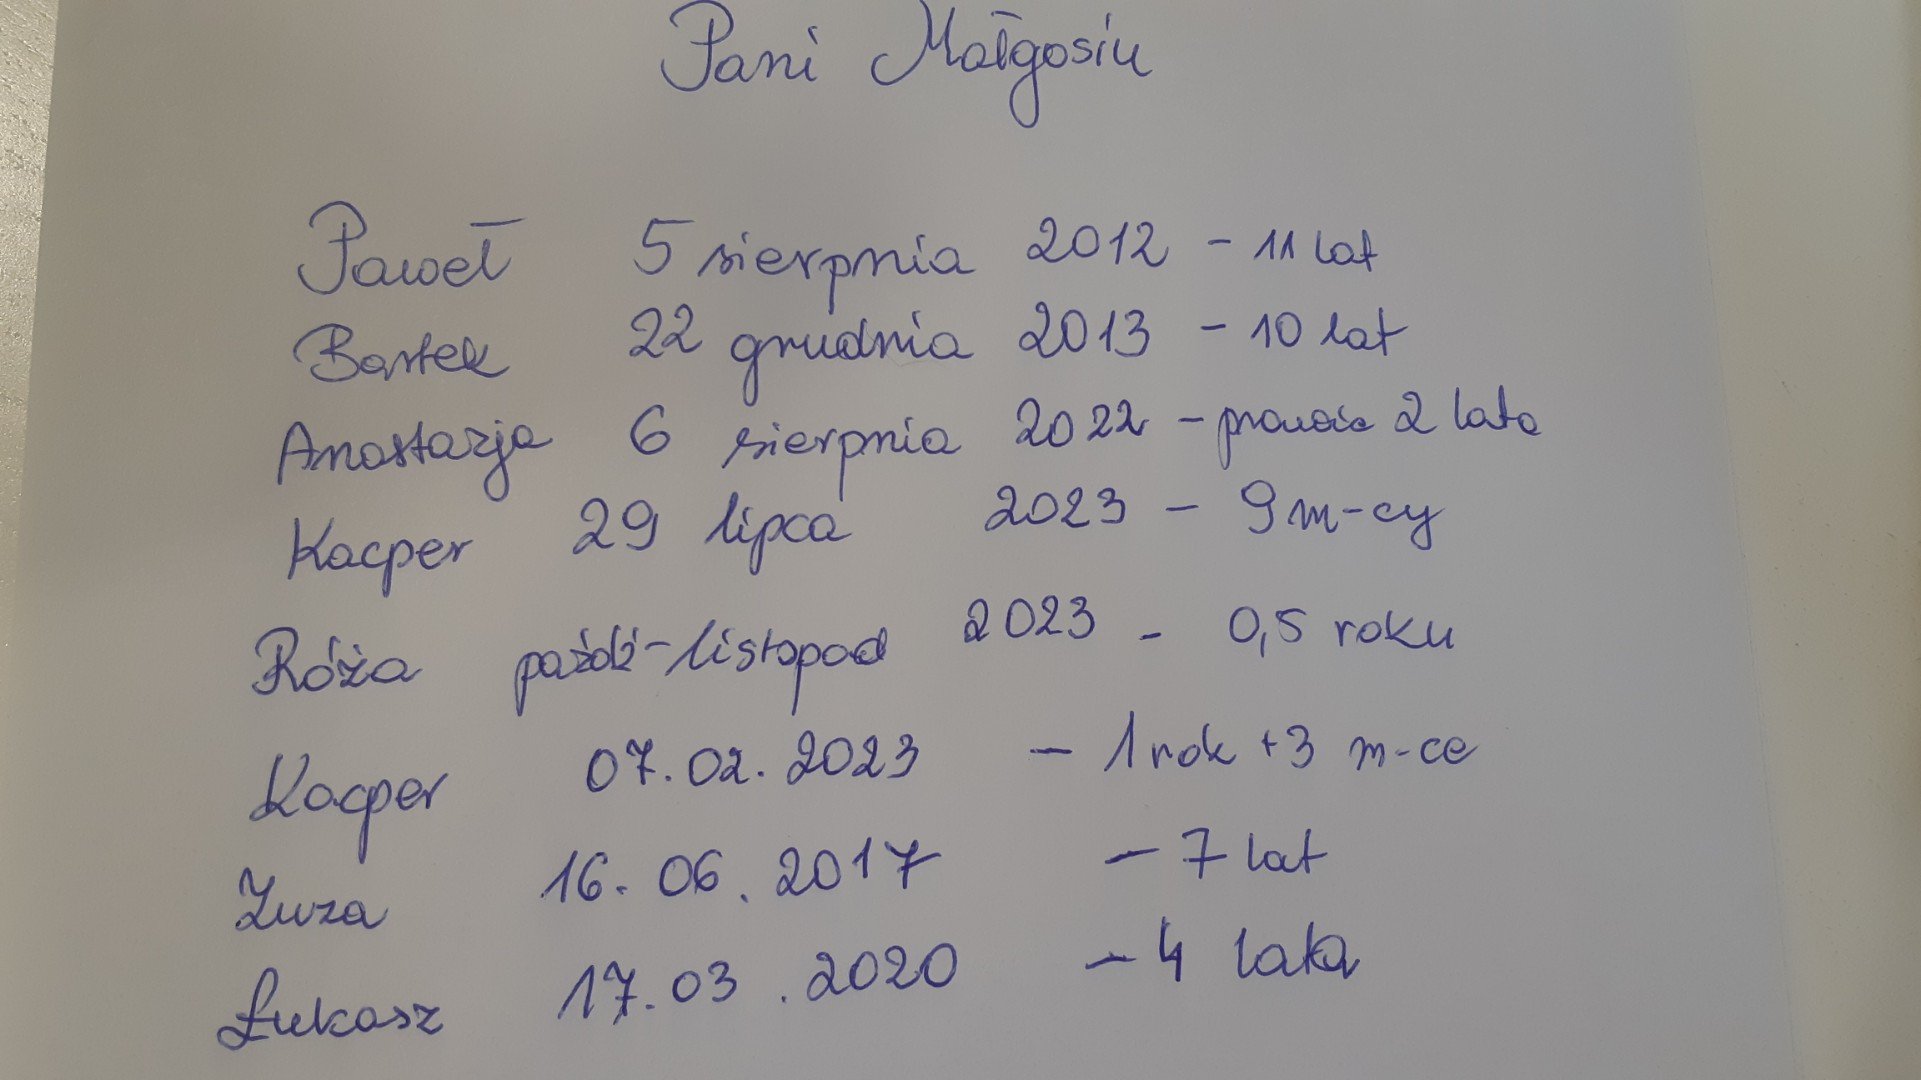 Pani Małgosiu
Paweł 5 sierpnia 2012 - 11 lat
Bartek 22 grudnia 2013 - 10 lat
Anastazja 6 sierpnia 2022 - prawie 2 lata
Kacper 29 lipca 2023 - 9 m-cy
Róża paźdź-listopad 2023 - 0,5 roku
Kacper 07.02.2023 - 1 rok + 3 m-ce
Zuza 16.06.2017 - 7 lat
Łukasz 17.03.2020 - 4 lata